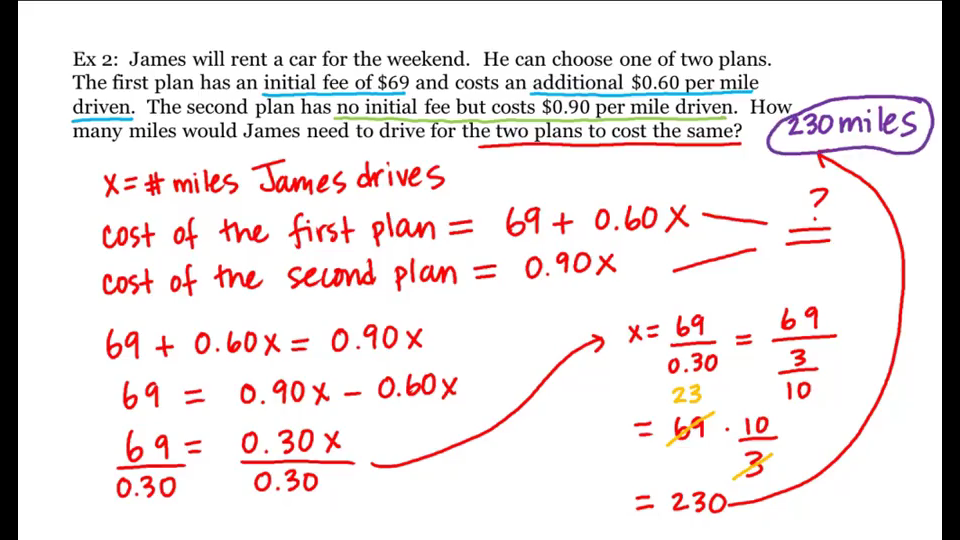 Ex 2: James will rent a car for the weekend. He can choose one of two plans.
The first plan has an initial fee of $69 and costs an additional $0.60 per mile
driven. The second plan has no initial fee but costs $0.90 per mile driven. How
many miles would James need to drive for the two plans to cost the same?
230 miles
x = # miles James drives
cost of the first plan = 69 + 0.60x
cost of the second plan = 0.90x
?
=
69 + 0.60x = 0.90x
69 = 0.90x - 0.60x
69 = 0.30x
0.30 0.30
x = 69 = 69
0.30 3
10
23
= 69 · 10
3
= 230